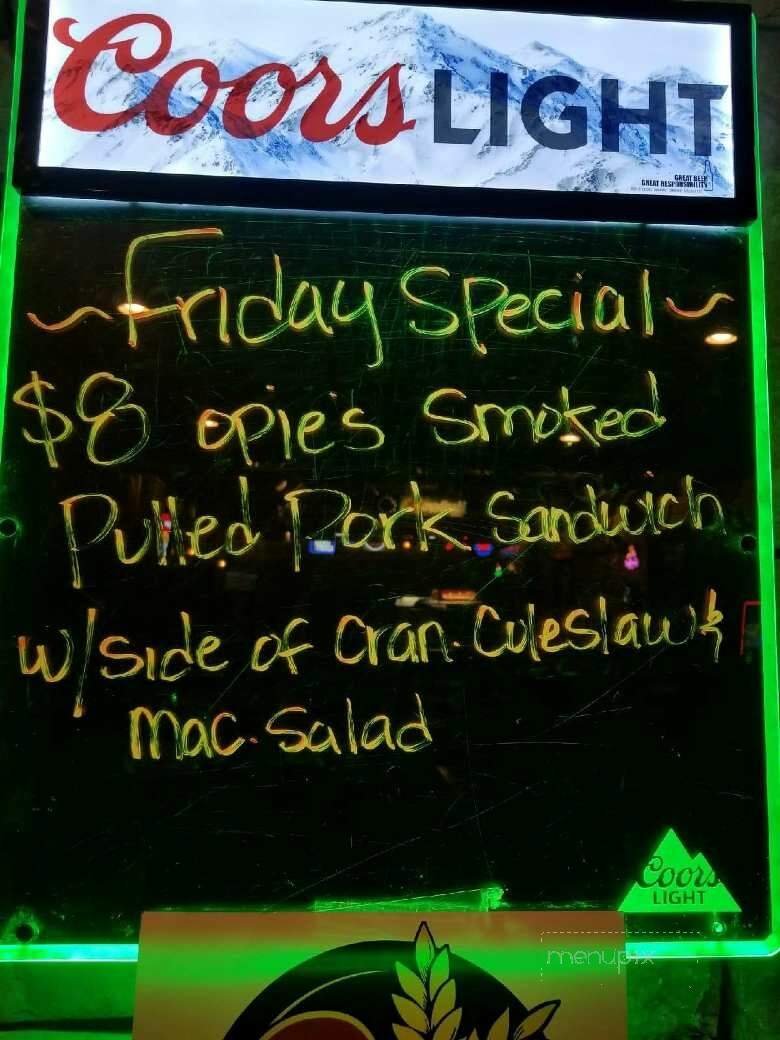 Coors LIGHT
GREAT BEER
GREAT RESPONSIBILITY
~Friday Special~
$8 opie's Smoked
Pulled Pork Sandwich
w/side of Cran. Coleslaw &
Mac. Salad
Coors
LIGHT
menupix